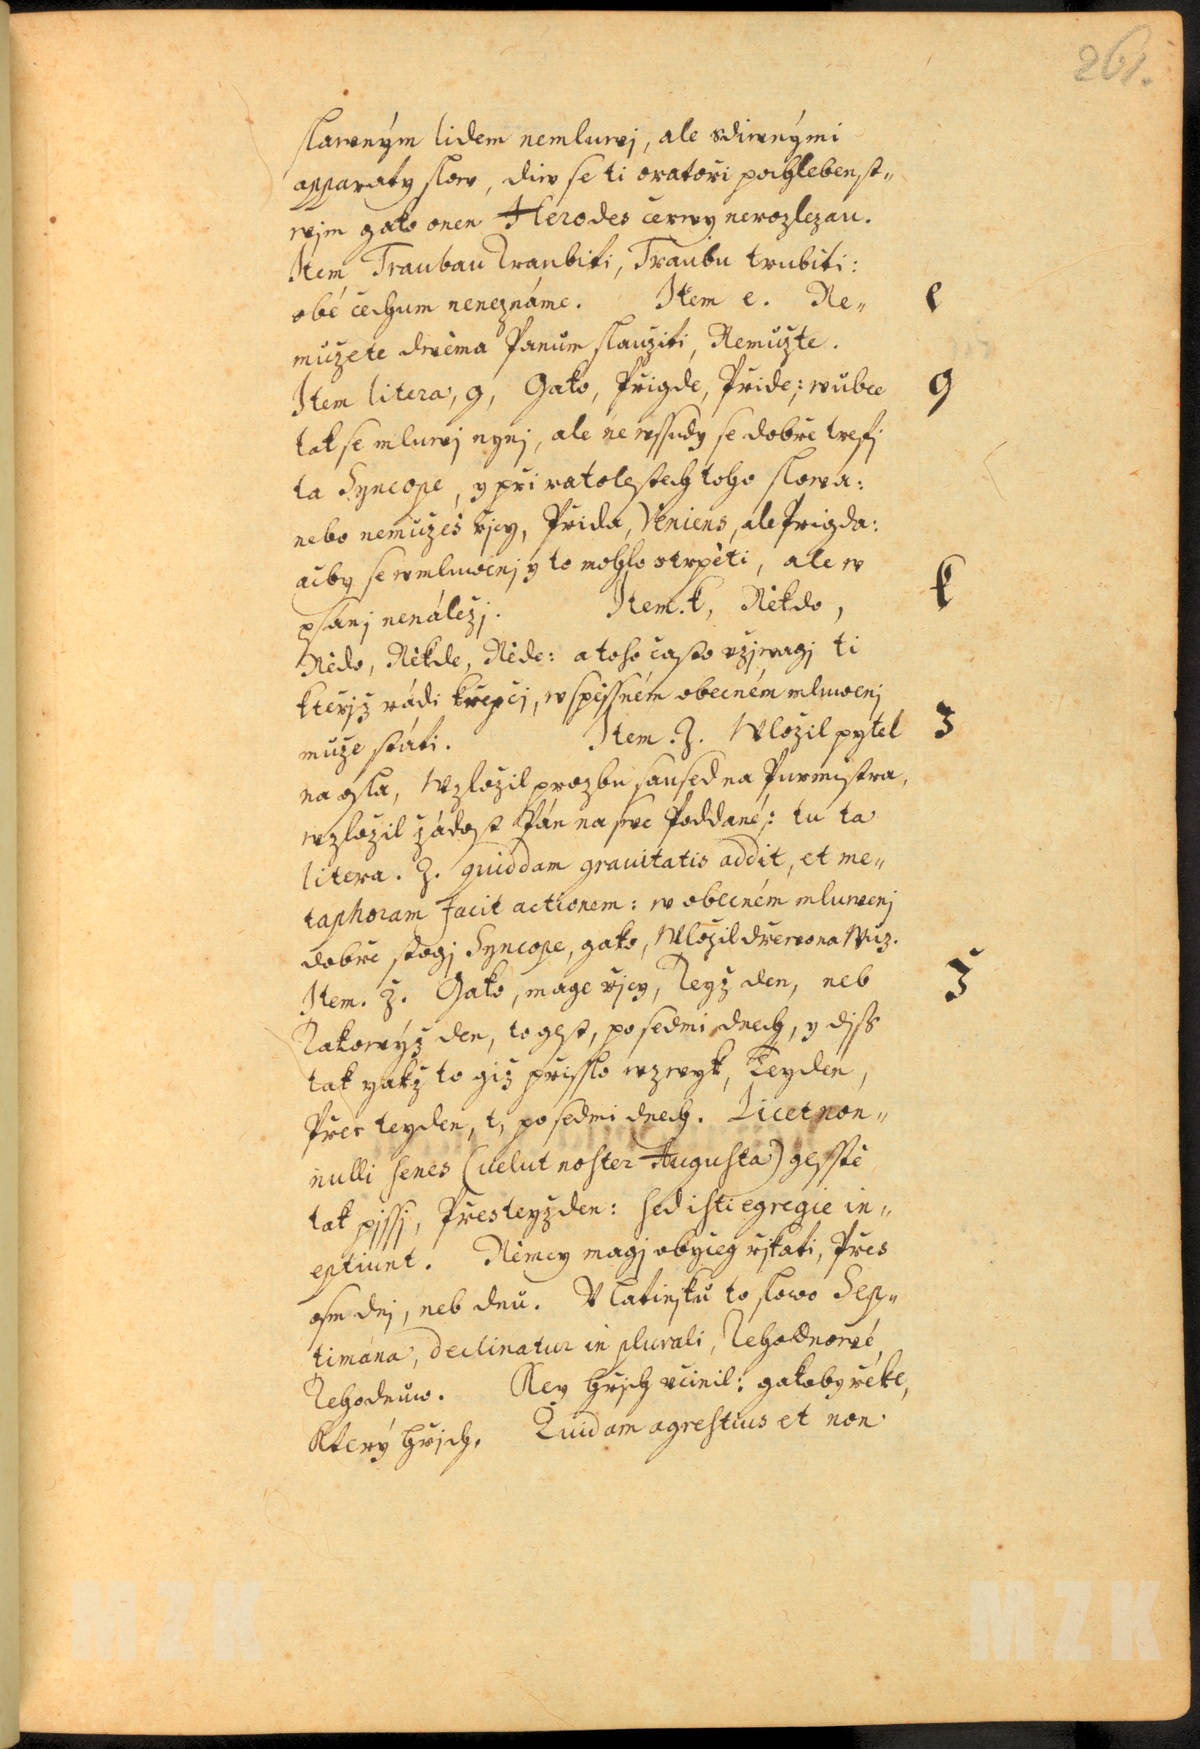 261.
slawným lidem nemluwj, ale sdiwnými
apparaty slow, diw se ti oratoři pochlebenst„
wjm gako onen Herodes čerwy nerozlezau.
Item Traubau Traubiti, Traubu trubiti:
obé čechum neneznáme. Item e. Ne„
e
mužete dwěma Panům slaužiti, Nemužte.
Item litera, g, Gako, Přigde, Příde; wubec
g
tak se mluwj nynj, ale ne wssudy se dobře trefj
ta Syncope, y při ratolestech toho slowa:
nebo nemužeš řjcy, Přida, Veniens, ale Přigda:
ačby se w mluwenj y to mohlo strpěti, ale w
psanj nenáležj. Item. k, Někdo,
k
Nědo, Někde, Něde: a toho často vžjwagj ti
kteřjž rádi křepčj, w spěssném obecném mluwenj
muže státi. Item. Z. Wložil pytel
z
na osla, Wzložil prozbu saused na Purmistra,
wzložil žádost Pán na swé Poddané: tu ta
litera. Z. quiddam grauitatis addit, et me„
taphoram facit actionem: w obecném mluwenj
dobře stogj Syncope, gako, Wložil dřewo na Wuz.
Item. ž. Gako, mage řjcy, Teyž den, neb
ž
Takowýž den, to gest, po sedmi dnech, y diss
tak yakž to giž přisslo w zwyk, Teyden,
Přes teyden, t, po sedmi dnech. Licet non„
nulli senes (uelut noster Augusta) gesstě
tak pjssj, Přes teyžden: sed isti egregie in„
eptiunt. Němcy magj obyčeg řjkati, Přes
osm dnj, neb dnů. W Latinsku to slowo Sep„
timána, declinatur in plurali, Tehodnowé,
Tehodnuw. Key hřjch včinil: gakoby řékl,
Který hřjch. Quidam agrestius et non
MZK
MZK